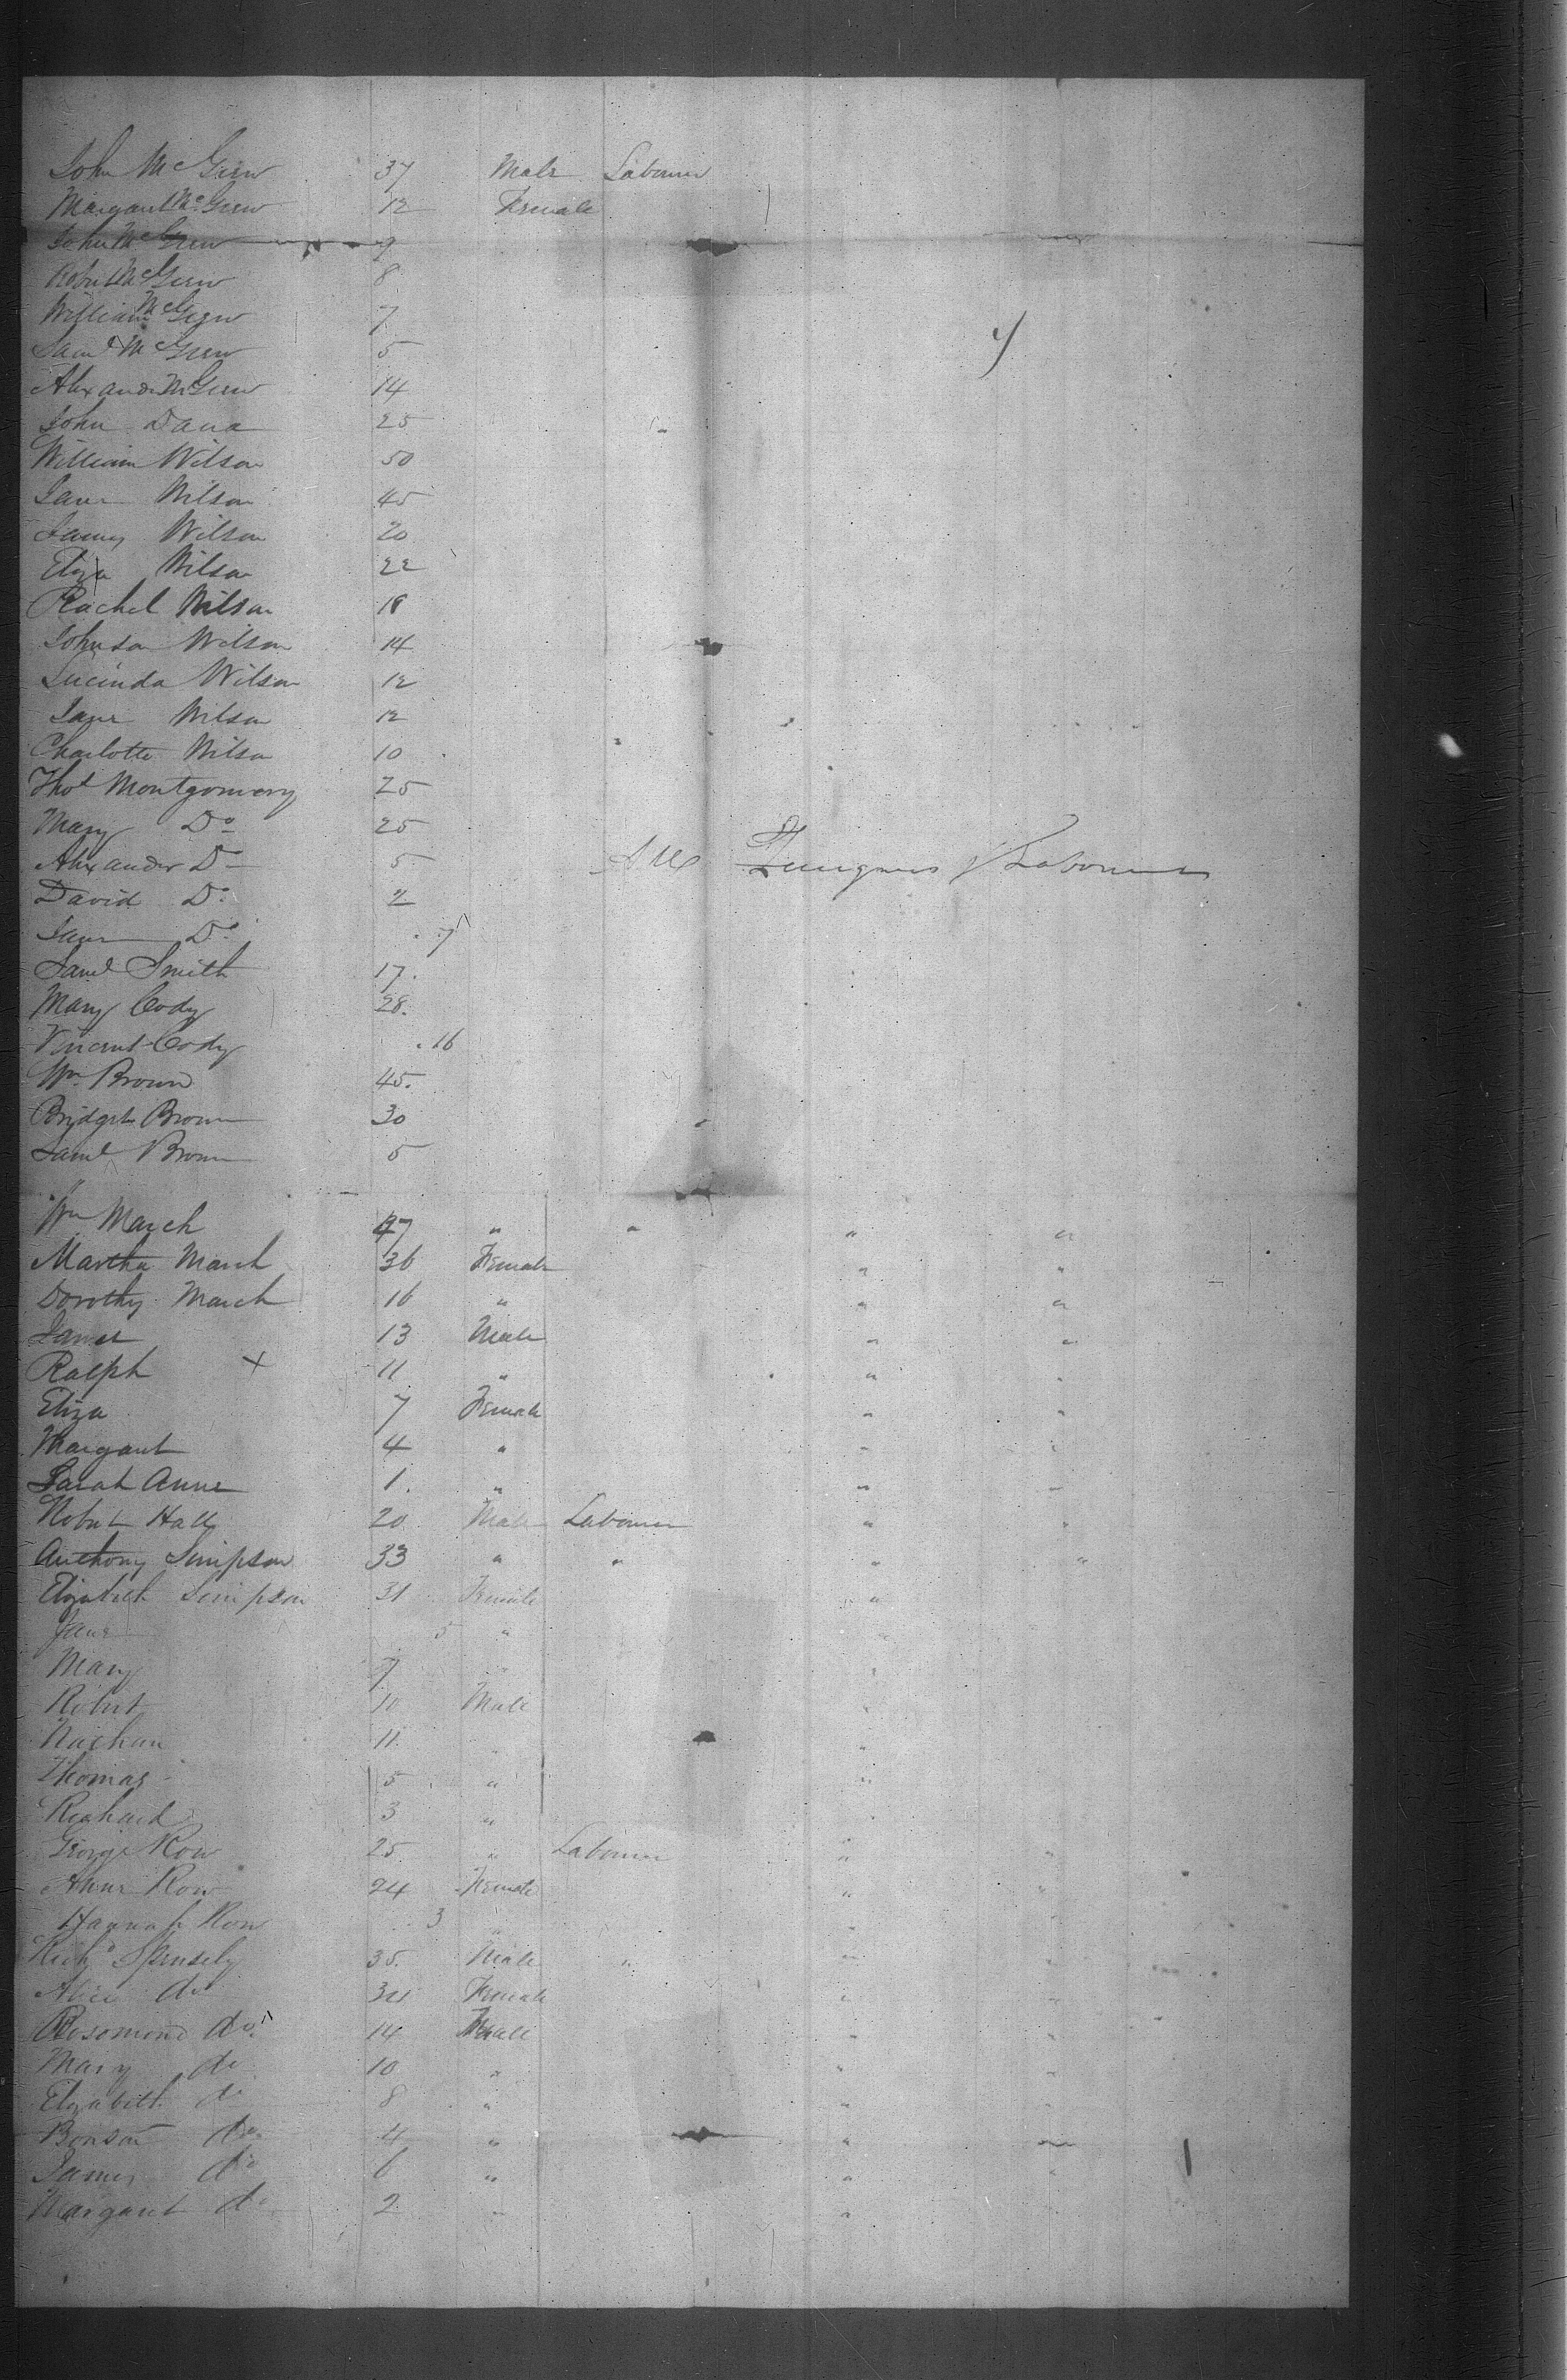 John McGrew 37 Male Labourer
Margaret McGrew 12 Female
John McGrew 9
Robert McGrew 8
William McGrew 7
Saml McGrew 5
Alexander McGrew 14
John Dana 25
William Wilson 50
Jane Wilson 45
James Wilson 20
Eliza Wilson 22
Rachel Wilson 18
Johnson Wilson 14
Lucinda Wilson 12
Jane Wilson 12
Charlotte Wilson 10
Thos Montgomery 25
Mary Do 25
Alexander Do 5 All Labourers
David Do 2
Jane Do 7
Saml Smith 17
Mary Cody 28
Vincent Cody 16
Wm Brown 45
Bridget Brown 30
Saml Brown 5
Wm March 47 " " " "
Martha March 36 Female " "
Dorothy March 16 " " "
James 13 Male " "
Ralph 11 " " "
Eliza 7 Female " "
Margaret 4 " " "
Sarah Anne 1 " " "
Robert Hall 20 Male Labourer " "
Anthony Simpson 33 " " " "
Elizabeth Simpson 31 Female "
Jane 5 "
Mary 7 "
Robert 10 Male "
Nathan 11 "
Thomas 5 " "
Richard 3 "
George Row 25 " Labourer " "
Anne Row 24 Female " "
Hannah Row 3 "
Richd Spensely 35 Male " " "
Alice do 34 Female " "
Rosomond do 14 " "
Mary do 10 " " "
Elizabeth do 8 " " "
Bonson do 4 " " "
James do 6 " " "
Margaret do 2 " "